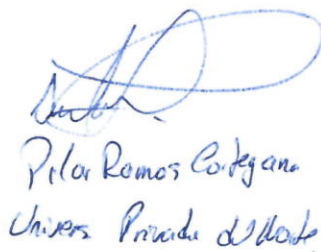 Pilar Ramos Cortegana
Univers Privada del Norte